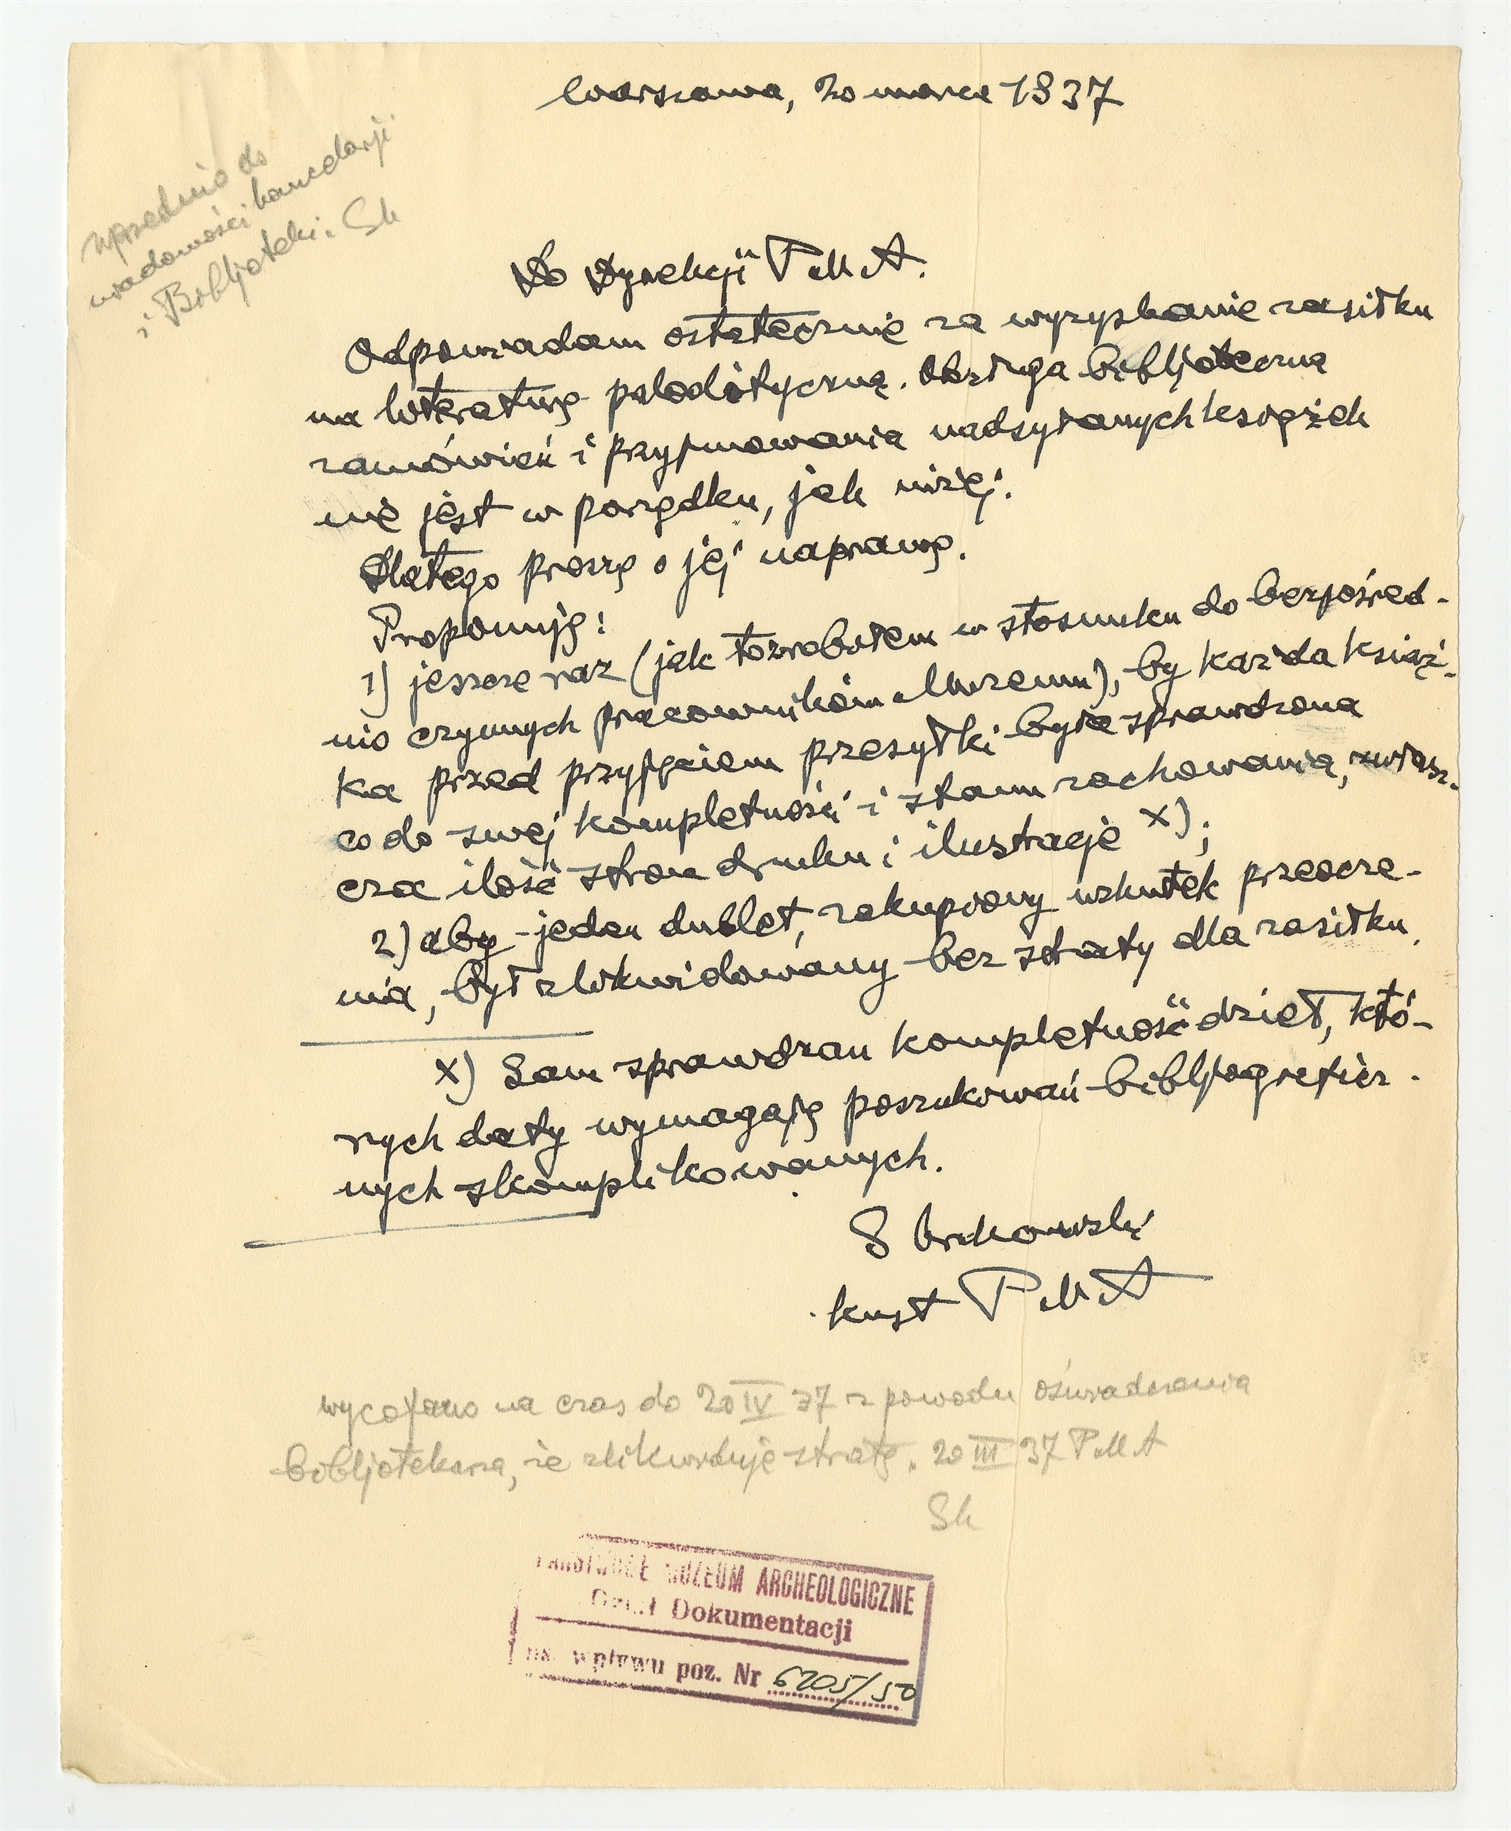 Warszawa, 20 marca 1937
uprzednio do
wiadomości kancelarji
i Bibljoteki. Sk
Do Dyrekcji PMA.
Odpowiadam ostatecznie za wyzyskanie zasiłku
na literaturę paleolityczną. Obsługa bibljoteczna
zamówień i przyjmowania nadsyłanych książek
nie jest w porządku, jak niżej.
Dlatego proszę o jej naprawę.
Proponuję:
1) jeszcze raz (jak to zrobiłem w stosunku do bezpośred-
nio czynnych pracowników Muzeum), by każda książ-
ka przed przyjęciem przesyłki była sprawdzona
co do swej kompletności i stanu zachowania, zwłasz-
cza ilość stron druku i ilustracje x);
2) aby jeden dublet, zakupiony wskutek przeocze-
nia, był zlikwidowany bez straty dla zasiłku.
x) Sam sprawdzam kompletność dzieł, któ-
rych daty wymagają poszukiwań bibljograficz-
nych skomplikowanych.
S Krukowski
kust PMA
wycofano na czas do 20 IV 37 z powodu oświadczenia
bibljotekarza, że zlikwiduje stratę. 20 III 37 PMA
Sk
PAŃSTWOWE MUZEUM ARCHEOLOGICZNE
Dział Dokumentacji
ks. wpływu poz. Nr 6205/50